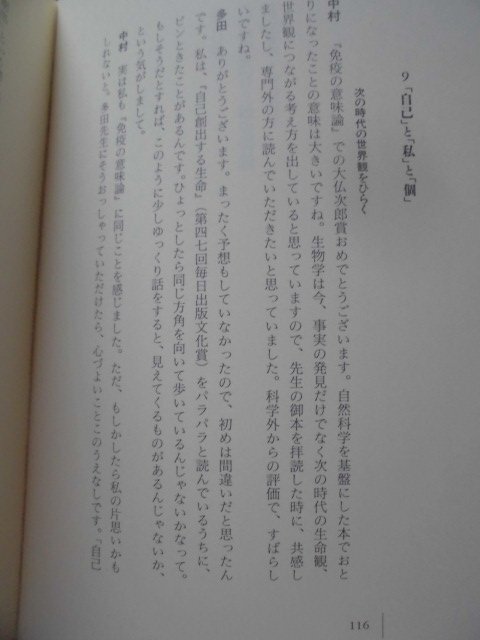 9 「自己」と「私」と「個」
次の時代の世界観をひらく
中村 『免疫の意味論』での大仏次郎賞おめでとうございます。自然科学を基盤にした本でおと
りになったことの意味は大きいですね。生物学は今、事実の発見だけでなく次の時代の生命観、
世界観につながる考え方を出していると思っていますので、先生の御本を拝読した時に、共感し
ましたし、専門外の方に読んでいただきたいと思っていました。科学外からの評価で、すばらし
いですね。
多田 ありがとうございます。まったく予想もしていなかったので、初めは間違いだと思ったん
です。私は、『自己創出する生命』(第四七回毎日出版文化賞)をパラパラと読んでいるうちに、
ピンときたことがあるんです。ひょっとしたら同じ方角を向いて歩いているんじゃないかなって。
もしそうだとすれば、このように少しゆっくり話をすると、見えてくるものがあるんじゃないか、
という気がしまして。
中村 実は私も『免疫の意味論』に同じことを感じました。ただ、もしかしたら私の片思いかも
しれないと。多田先生にそうおっしゃっていただけたら、心づよいことこのうえなしです。「自己
116